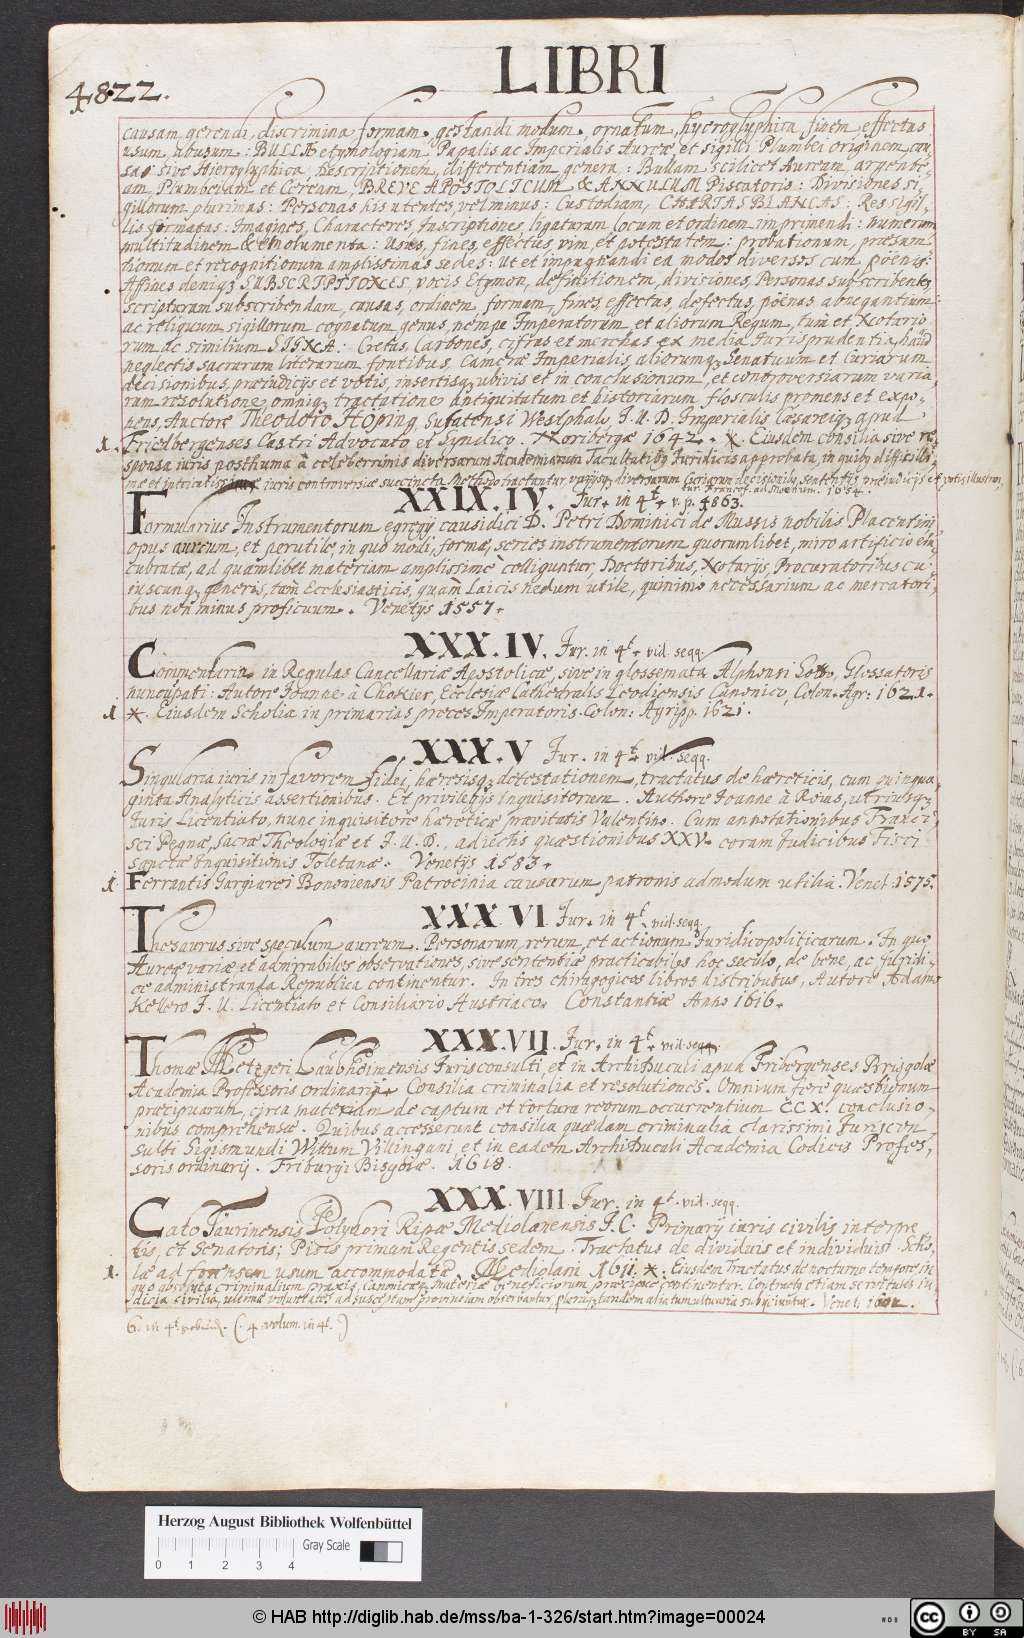 LIBRI
4822.
causam gerendi, discrimina formam, gestandi modum, ornatum, hyeroglyphica finem effectus
usum, abusum: BULLÆ etymologiam Papalis ac Imperialis Aureæ et sigilli Plumbei originem cau,
sas sive Hieroglyphica, descriptionem, differentiam genera,: Bullam scilicet Auream, argente,
am, Plumbeam et Ceream, BREVE APOSTOLICUM & ANNULUM Piscatoris: Divisiones si,
gillorum plurimas: Personas his utentes, vel minus: Custodiam, CHARTAS BLANCAS: Res sigil,
lis formatas: Imagines, Characteres, Inscriptiones, ligaturam locum et ordinem imprimendi: numerum
multitudinem & emolumenta: Usus, fines, effectus, vim, et potestatem: probationum, præsum
tionum et recognitionum amplissimas sedes: ut et impugnandi ea modos diversos cum poenis:
Affines deniq; SUBSCRIPTIONES, vocis Etymon, definitionem, divisiones, Personas subscribentes
scripturam subscribendam, causas, ordinem, formam, fines, effectus, defectus, poenas abnegantium:
ac reliquum sigillorum cognatum genus, nempe Imperatorum, et aliorum Regum, tum et Notario
rum ac similium SIGNA: Cretas, Carbones, cifras et merchas ex media Iurisprudentia, haud
neglectis sacrarum literarum fontibus, Cameræ Imperialis aliorumq; Senatuum et Curiarum
decisionibus, præiudicijs et votis, insertisq; ubivis et in conclusionum, et controversiarum varia,
rum resolutione, omniq; tractatione antiquitatum et historiarum flosculis promens et expo,
nens, Auctore Theodoro Höping, Susatensi Westphalo, I. U. D. Imperialis Cæsareiq; apud
1. Friedbergenses Castri Advocato et Syndico. Noribergæ 1642. * Eiusdem consilia sive re,
sponsa iuris posthuma à celeberrimis diversarum Academiarum Facultatibq; Iuridicis approbata, in quibq; difficilli,
mæ et intricatissimæ iuris controversiæ succincta methodo tractantur varijsq; diversarum Curiarum decisionibq; sententijs præiudicijs et votis illustrans,
Francof. ad Moenum. 1654.
XXIX.IV. Iur. in 4t. v. p. 4863.
Formularius Instrumentorum egregij causidici D. Petri Dominici de Mussis nobilis Placentini
opus aureum, et perutile, in quo modi, formæ, series instrumentorum quorumlibet, miro artificio elu,
cubratæ, ad quamlibet materiam amplissime colliguntur, Doctoribus, Notarijs, Procuratoribus cu
iuscunq; generis, tam Ecclesiasticis, quam Laicis nedum utile, quinimo necessarium ac mercatori,
bus non minus proficuum. Venetijs 1557.
XXX.IV. Iur. in 4t. vid. seqq.
Commentaria in Regulas Cancellariæ Apostolicæ, sive in glossemata Alphonsi Soto, Glossatoris
nuncupati: Autore Ioanne à Chokier, Ecclesiæ Cathedralis Leodiensis Canonico, Colon. Agr: 1621.
1 *. Eiusdem Scholia in primarias preces Imperatoris. Colon: Agripp. 1621.
XXX.V Iur. in 4t. vid. seqq.
Singularia iuris in favorem fidei, hæresisq; detestationem, tractatus de hæreticis, cum quinqua
ginta Analyticis assertionibus. Et privilegijs inquisitorum. Authore Ioanne à Roias, utriusq;
Iuris Licentiato, nunc inquisitore hæreticæ pravitatis Valentino. Cum annotationibus Franci,
sci Pegnæ, Sacræ Theologiæ et I. U. D., adiectis quæstionibus XXV. coram Iudicibus Fisci
sanctæ Inquisitionis Toletanæ. Venetijs 1583.
1. Ferrantis Gargiarei Bononiensis Patrocinia causarum patronis admodum utilia. Venet. 1575.
XXX VI Iur. in 4t. vid. seqq.
Thesaurus sive speculum aureum. Personarum, rerum, et actionum Iuridicopoliticarum. In quo
Aureæ variæ, et admirabiles observationes, sive sententiæ practicabiles hoc seculo, de bene, ac iuridi,
ce administranda Republica continentur. In tres chiragogicos libros distributus, Autore Adamo
Kellero I. U. Licentiato et Consiliario Austriaco. Constantiæ Anno 1616.
XXX.VII Iur. in 4t. vid. seqq.
Thomæ Metzgeri Laubheimensis Iurisconsulti, et in ArchiDucali apud Fribergenses Brisgoiæ
Academia Professoris ordinarij. Consilia criminalia et resolutiones. Omnium fere quæstionum
præcipuarum, circa materiam de captura et tortura reorum occurrentium CCX. conclusio,
nibus comprehensæ. Quibus accesserunt consilia quædam criminalia clarissimi Iuriscon,
sulti Sigismundi Wittum Villingani, et in eadem ArchiDucali Academia Codicis Profes,
soris ordinarij. Friburgi Brisgoiæ. 1618.
XXX.VIII Iur. in 4t. vid. seqq.
Cato Taurinensis Polydori Ripæ Mediolanensis I. C. Primarij iuris civilis interpre
tis, et Senatoris; Picis primam Regentis sedem. Tractatus de dividuis et individuis Scho,
1. læ ad forensem usum accommodata Mediolani 1611. *. Eiusdem Tractatus de nocturno tempore in
quo absoluta criminalium praxis, Canonicæq; materiæ beneficiorum præcipue continentur. Contractq; etiam servitutes iu
dicia civilia, ultimæ voluntates ad susceptam provinciam observantur, pleriq; tandem alia tumultuaria subijciuntur. Venet. 1602.
6. in 4t. (4 volum. in 4t.)
Herzog August Bibliothek Wolfenbüttel
Gray Scale
0 1 2 3 4
© HAB http://diglib.hab.de/mss/ba-1-326/start.htm?image=00024
WDB
cc BY SA